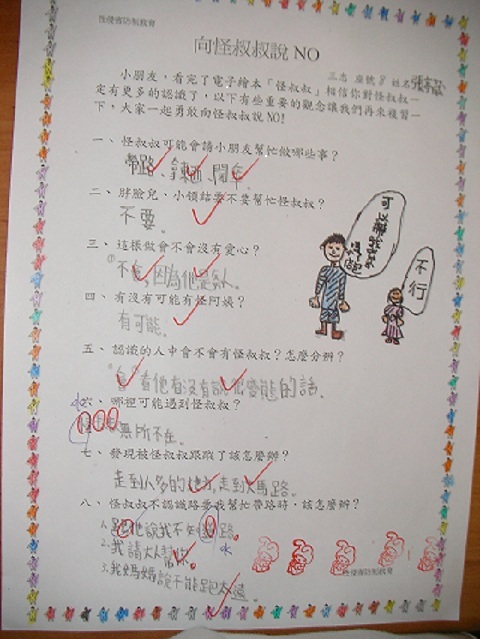 性侵害防制教育
向怪叔叔說 NO
三忠 座號 8 姓名
小朋友，看完了電子繪本「怪叔叔」相信你對怪叔叔一
定有更多的認識了，以下有些重要的觀念讓我們再來複習一
下，大家一起勇敢向怪叔叔說 NO!
一、怪叔叔可能會請小朋友幫忙做哪些事?
帶路、
二、胖臉兒、小領結要不要幫忙怪叔叔?
不要。
三、這樣做會不會沒有愛心?
不會，因為他是
四、有沒有可能有怪阿姨?
有可能。
五、認識的人中會不會有怪叔叔?怎麼分辨?
會 看他有沒有說 的話。
六、哪裡可能遇到怪叔叔?
無所不在。
七、發現被怪叔叔跟蹤了該怎麼辦?
走到人多的地方，走到大馬路。
八、怪叔叔不認識路要我幫忙帶路時，該怎麼辦?
1. 跟他說我不知道路。
2. 我請大人幫你。
3. 我媽媽說不能跑太遠。
可以
不行
性侵害防制教育